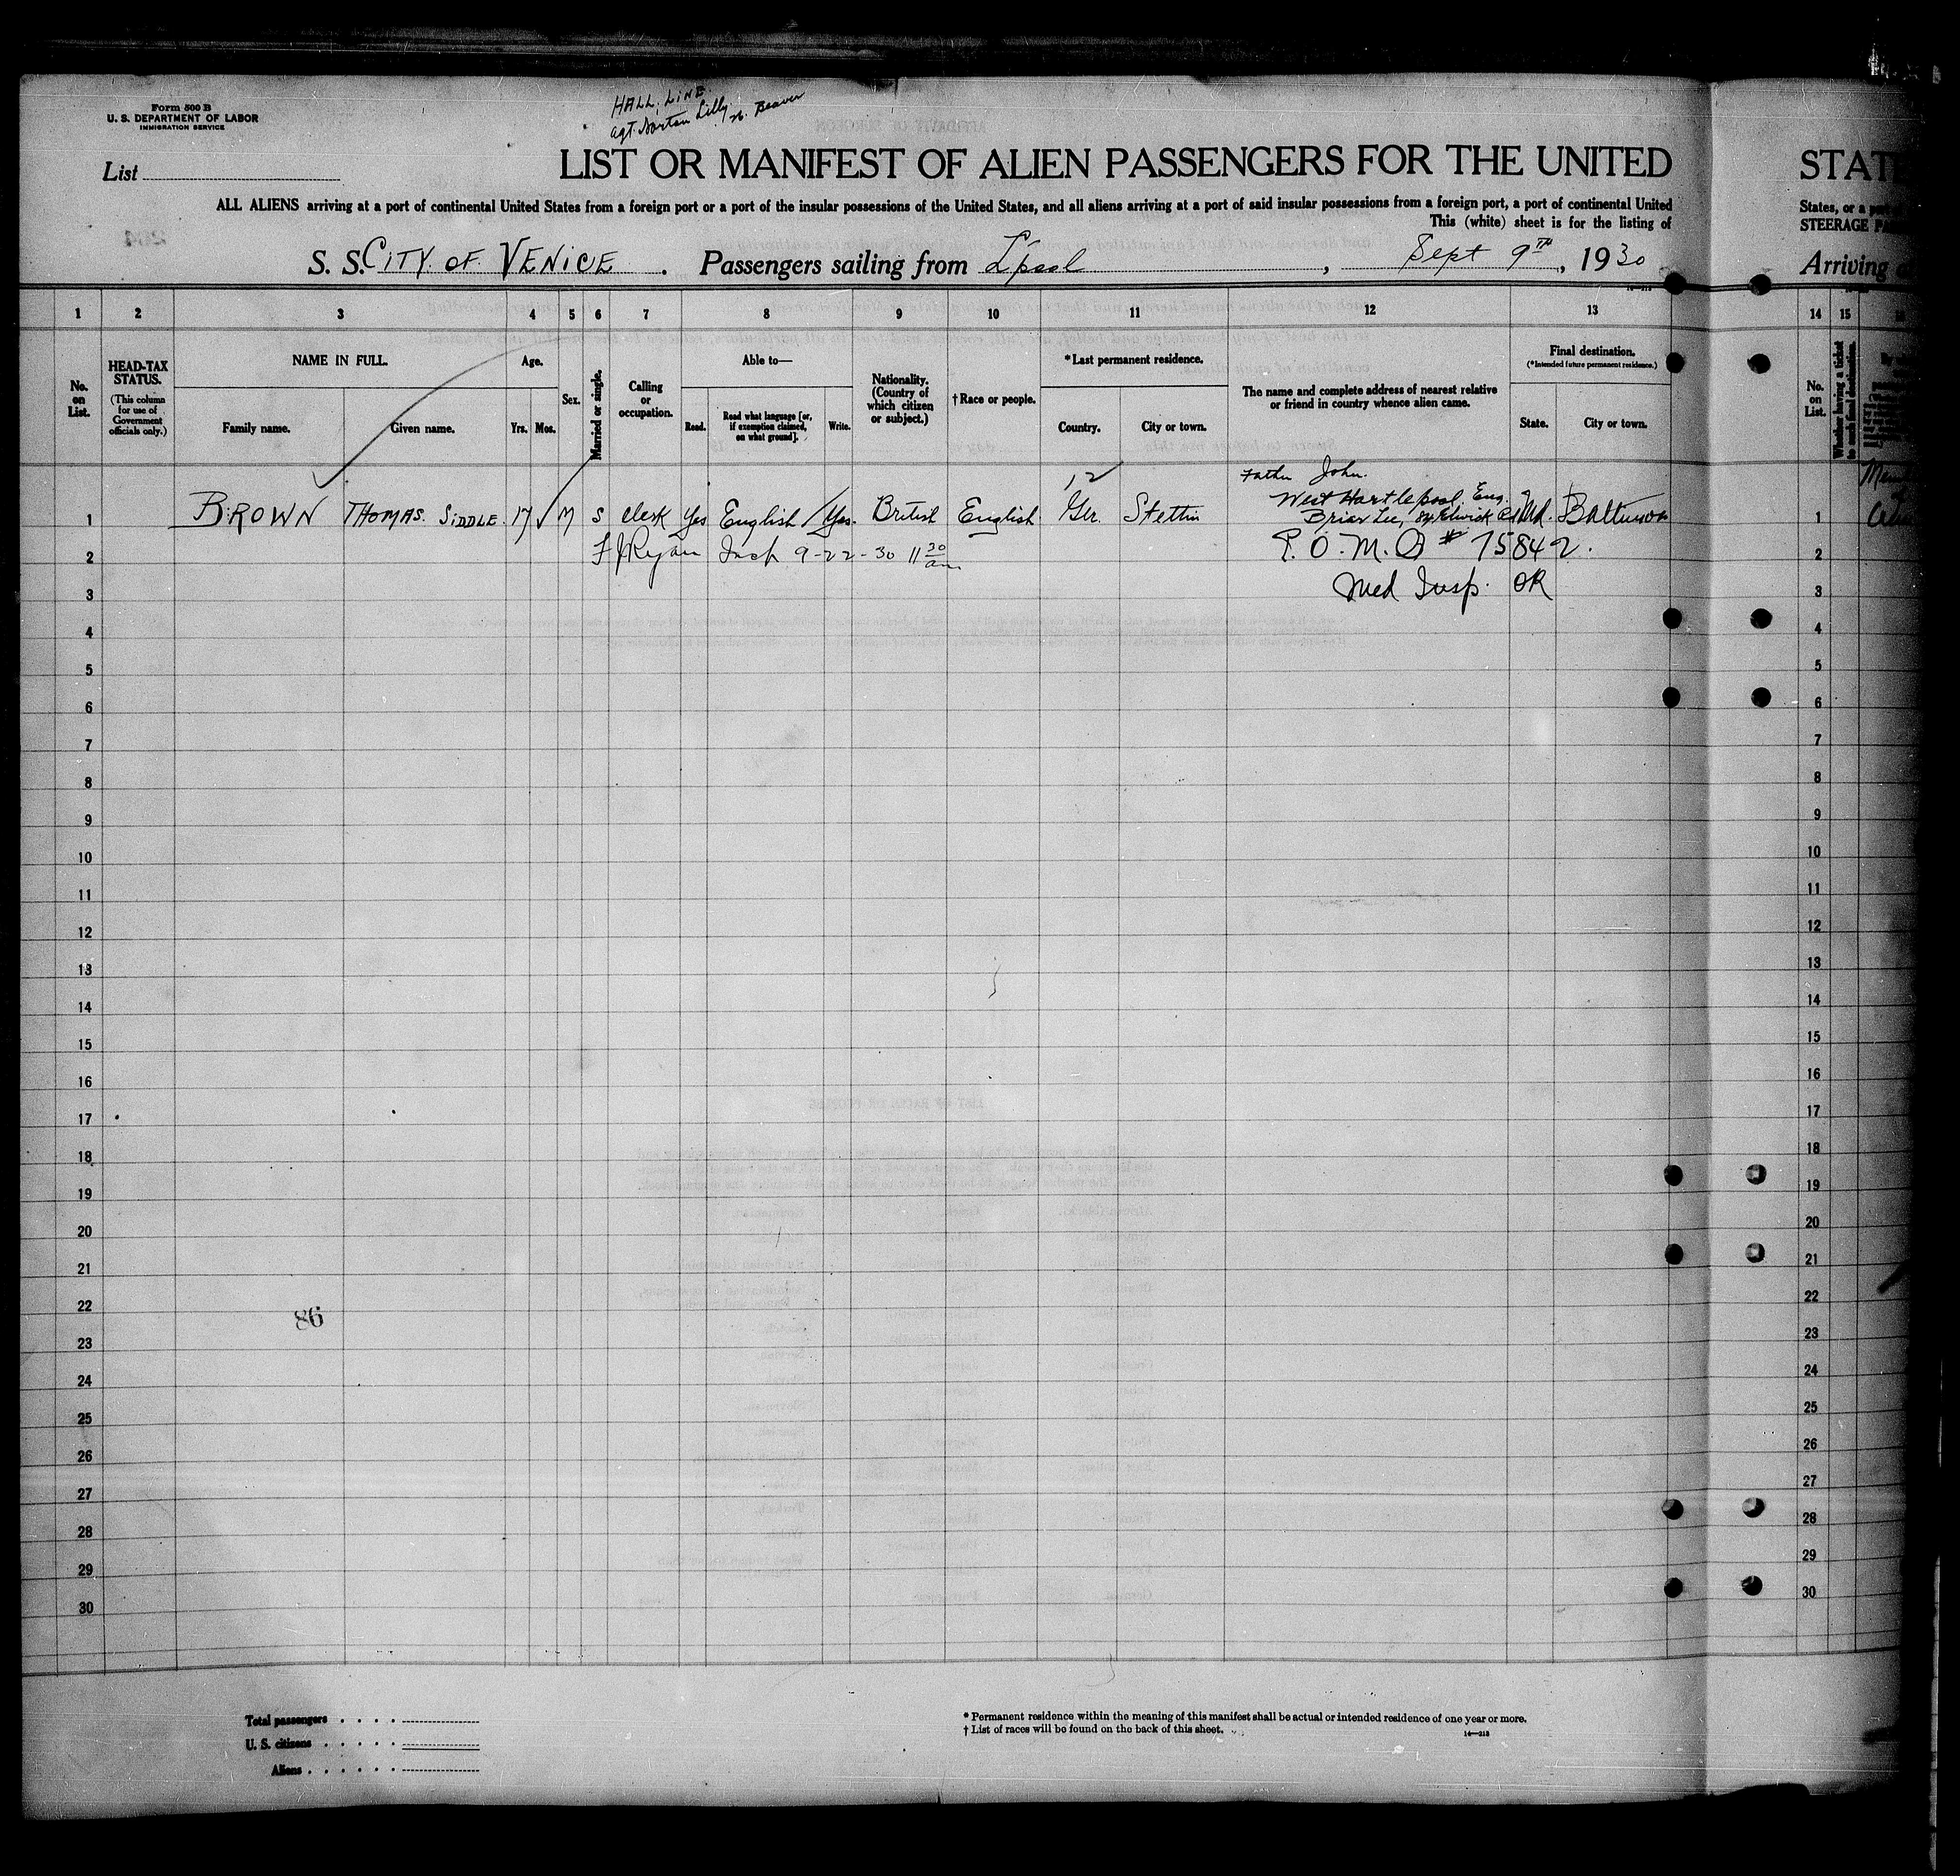 Form 500 B
U. S. DEPARTMENT OF LABOR
IMMIGRATION SERVICE
HALL. LINE.
agt. Norton Lilly. N. Beaver
List
LIST OR MANIFEST OF ALIEN PASSENGERS FOR THE UNITED
STATE
ALL ALIENS arriving at a port of continental United States from a foreign port or a port of the insular possessions of the United States, and all aliens arriving at a port of said insular possessions from a foreign port, a port of continental United
States, or a
This (white) sheet is for the listing of
STEERAGE PA
S. S. CITY. OF. VENICE . Passengers sailing from L'pool , Sept 9TH, 1930
Arriving
1 2 3 4 5 6 7 8 9 10 11 12 13
14 15
No. on List.
HEAD-TAX STATUS.
(This column for use of Government officials only.)
NAME IN FULL.
Family name. Given name.
Age.
Yrs. Mos.
Sex.
Married or single.
Calling or occupation.
Able to—
Read. Read what language [or, if exemption claimed, on what ground]. Write.
Nationality. (Country of which citizen or subject.)
†Race or people.
*Last permanent residence.
Country. City or town.
The name and complete address of nearest relative or friend in country whence alien came.
Final destination.
(*Intended future permanent residence.)
State. City or town.
No. on List.
Whether having a ticket to such final destination.
12
Father John.
West Hartlepool. Eng.
1 BROWN THOMAS. SIDDLE. 17 M S clerk Yes English Yes. British English. Ger. Stettin Briar Lee, Elwick Rd Md. Baltimore 1
2 F J Ryan Insp 9-22-30 11 30 am P. O. M. O # 75842. 2
3 Med Insp. OK 3
4 4
5 5
6 6
7 7
8 8
9 9
10 10
11 11
12 12
13 13
14 14
15 15
16 16
17 17
18 18
19 19
20 20
21 21
22 22
86
23 23
24 24
25 25
26 26
27 27
28 28
29 29
30 30
Total passengers . . . .
U. S. citizens . . . . .
Aliens . . . . . .
* Permanent residence within the meaning of this manifest shall be actual or intended residence of one year or more.
† List of races will be found on the back of this sheet.
14—218